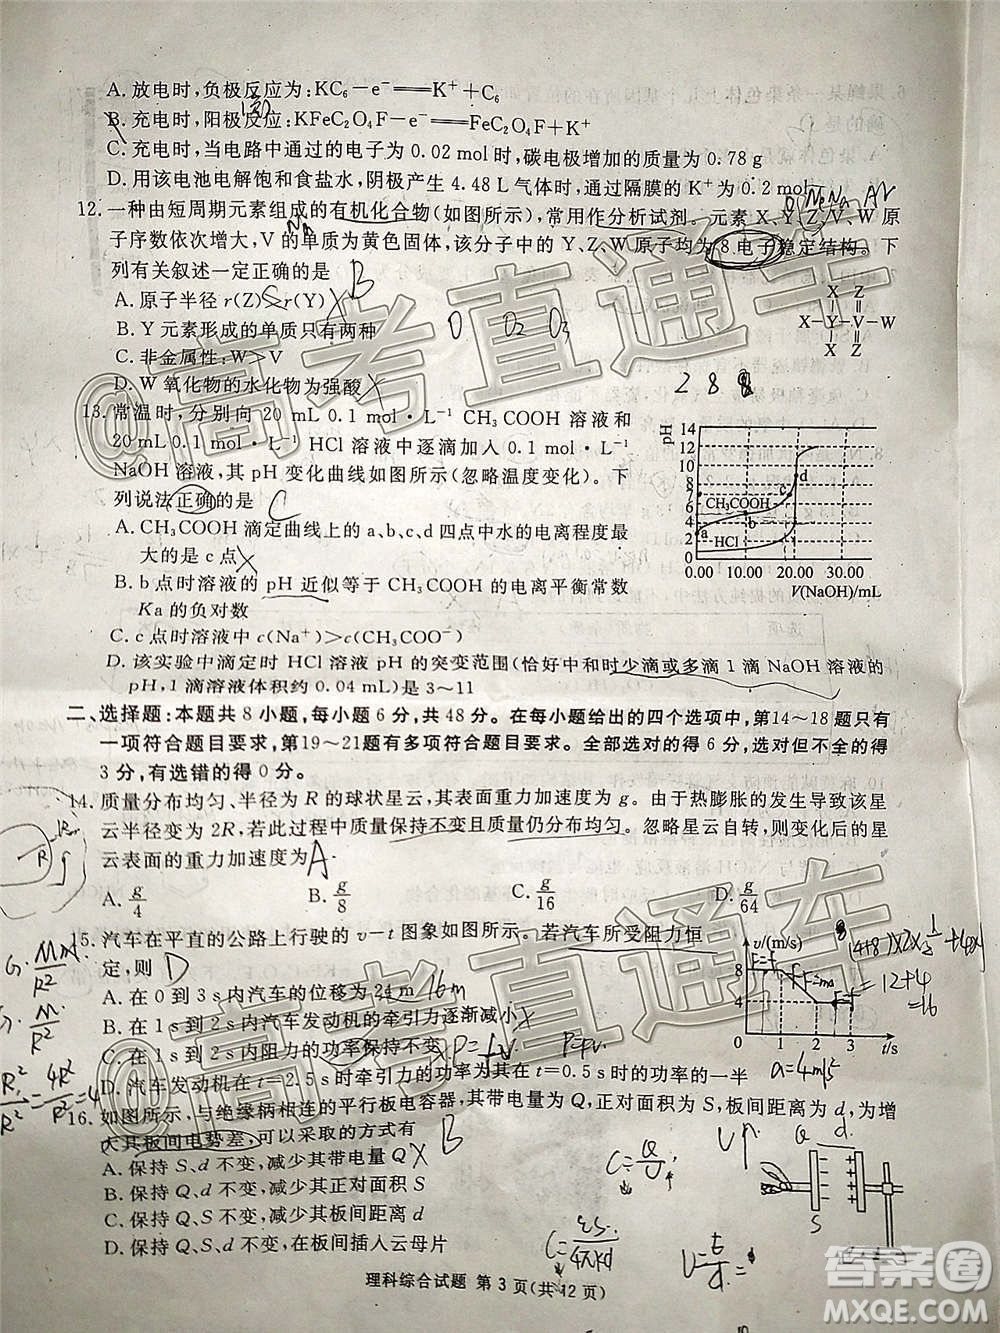 A.放电时,负极反应为:KC₆－e⁻══K⁺＋C₆
B.充电时,阳极反应:KFeC₂O₄F－e⁻══FeC₂O₄F＋K⁺
C.充电时,当电路中通过的电子为0.02 mol时,碳电极增加的质量为0.78 g
D.用该电池电解饱和食盐水,阴极产生4.48 L气体时,通过隔膜的K⁺为0.2 mol
12.一种由短周期元素组成的有机化合物(如图所示),常用作分析试剂。元素X、Y、Z、V、W原
子序数依次增大,V的单质为黄色固体,该分子中的Y、Z、W原子均为8电子稳定结构。下
列有关叙述一定正确的是 B
A.原子半径r(Z)<r(Y)
B.Y元素形成的单质只有两种 O O₂ O₃
C.非金属性:W>V
D.W氧化物的水化物为强酸
X Z
X—Y—V—W
X Z
2 8 8
13.常温时,分别向20 mL 0.1 mol·L⁻¹ CH₃COOH溶液和
20 mL 0.1 mol·L⁻¹ HCl溶液中逐滴加入0.1 mol·L⁻¹
NaOH溶液,其pH变化曲线如图所示(忽略温度变化)。下
列说法正确的是 C
A.CH₃COOH滴定曲线上的a、b、c、d四点中水的电离程度最
大的是c点
B.b点时溶液的pH近似等于CH₃COOH的电离平衡常数
Ka的负对数
C.c点时溶液中c(Na⁺)>c(CH₃COO⁻)
D.该实验中滴定时HCl溶液pH的突变范围(恰好中和时少滴或多滴1滴NaOH溶液的
pH,1滴溶液体积约0.04 mL)是3~11
pH
14
12
10
8
6
4
2
CH₃COOH
HCl
a
b
c
d
0.00 10.00 20.00 30.00
V(NaOH)/mL
二、选择题:本题共8小题,每小题6分,共48分。在每小题给出的四个选项中,第14~18题只有
一项符合题目要求,第19~21题有多项符合题目要求。全部选对的得6分,选对但不全的得
3分,有选错的得0分。
14.质量分布均匀、半径为R的球状星云,其表面重力加速度为g。由于热膨胀的发生导致该星
云半径变为2R,若此过程中质量保持不变且质量仍分布均匀。忽略星云自转,则变化后的星
云表面的重力加速度为 A
A. g/4 B. g/8 C. g/16 D. g/64
15.汽车在平直的公路上行驶的v-t图象如图所示。若汽车所受阻力恒
定,则 D
A.在0到3 s内汽车的位移为24 m 16m
B.在1 s到2 s内汽车发动机的牵引力逐渐减小
C.在1 s到2 s内阻力的功率保持不变 P=fv
D.汽车发动机在t=2.5 s时牵引力的功率为在t=0.5 s时的功率的一半
v/(m/s)
8
4
0 1 2 3 t/s
12+4
=16
a=4m/s²
16.如图所示,与绝缘柄相连的平行板电容器,其带电量为Q,正对面积为S,板间距离为d,为增
大其板间电势差,可以采取的方式有 B
A.保持S、d不变,减少其带电量Q
B.保持Q、d不变,减少其正对面积S
C.保持Q、S不变,减少其板间距离d
D.保持Q、S不变,在板间插入云母片
U↑
C=Q/U
C=εS/4πkd
Q
d
S
理科综合试题 第3页(共12页)
@高考直通车
@高考直通车
答案圈
MXQE.COM